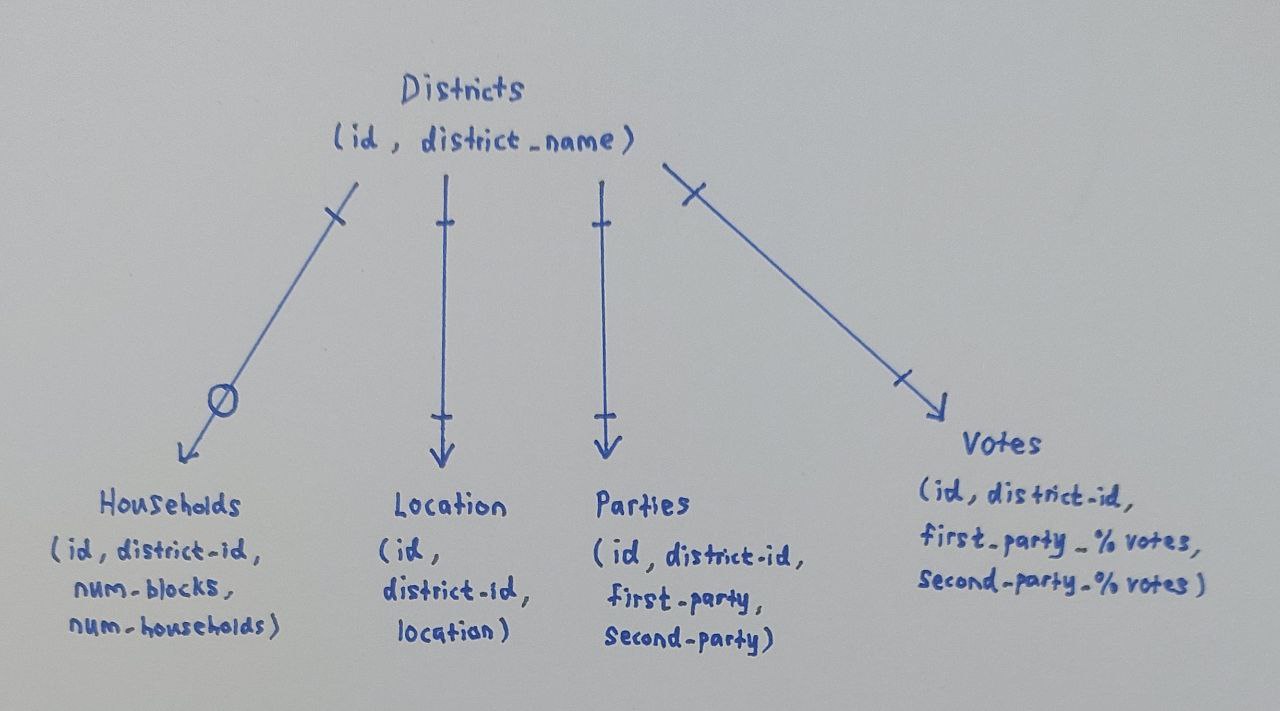 Districts
(id, district_name)
Households
(id, district-id,
num-blocks,
num-households)
Location
(id,
district-id,
location)
Parties
(id, district-id,
first-party,
second-party)
Votes
(id, district-id,
first-party-% votes,
second-party-% votes)